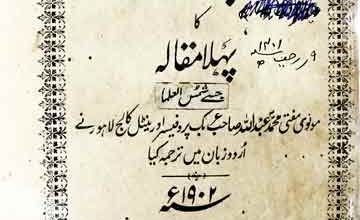 کا
پہلا مقالہ
جسے شمس العلما
مولوی مفتی محمد عبداللہ صاحب پروفیسر اورینٹل کالج لاہور نے
اُردو زبان میں ترجمہ کیا
سنہ ۱۹۰۲ء